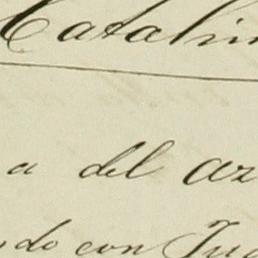 Catalin
a del az
do con Jua